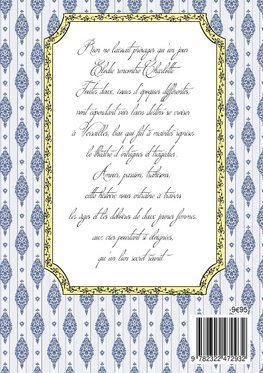 Rien ne laissait présager qu'un jour
Elodie rencontre Charlotte.
Toutes deux, issues d'époques différentes,
vont cependant voir leurs destins se croiser
à Versailles, lieu qui fut à maintes reprises
le théâtre d'intrigues et tragédies.
Amour, passion, trahisons,
cette histoire nous entraîne à travers
les âges et les déboires de deux jeunes femmes,
aux vies pourtant si éloignées,
qu'un lien secret réunit...
9€95
9 782322 472932